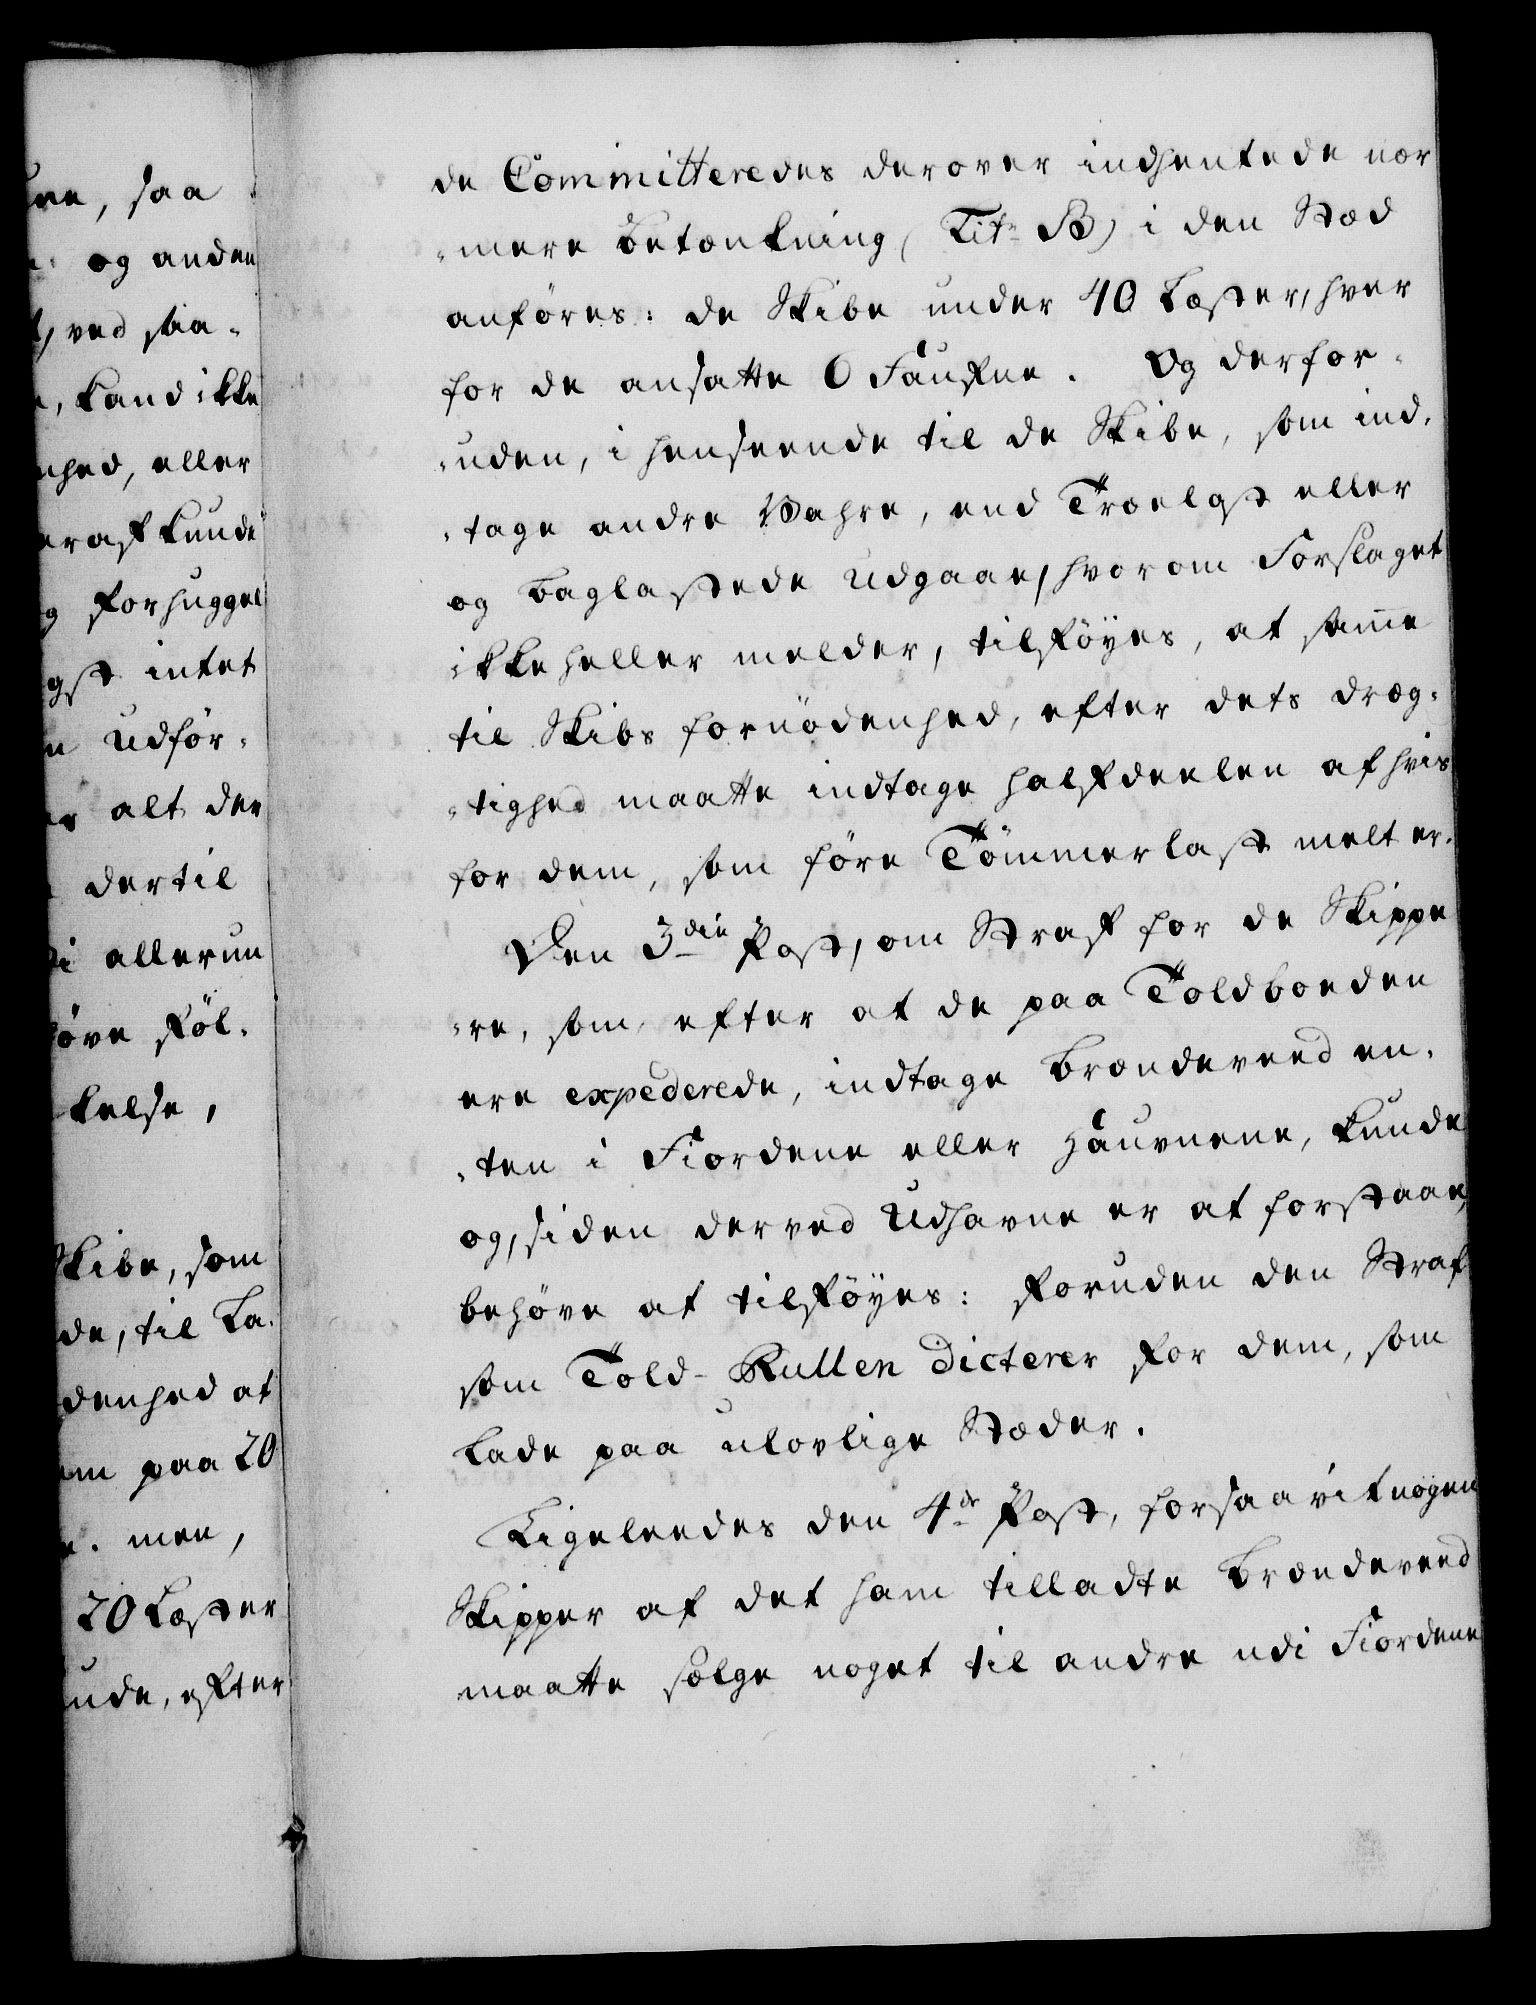 ne, saa
og anden
ved saa-
, kand ikke
nhed, eller
eraf kunde
g forhugges
gst intet
n udfør-
er alt der
dertil
i allerun
øve føl-
kelse,
Skibe, som
de, til La-
denhed at
em paa 20
e. men,
20 Læster
unde, efter
de Committeredes derover indhentede nær
-mere Betænkning (Litr B) i den Stæd
anføres: de Skibe under 40 Læster, hver
for de ansatte 6 Faufne. Og derfor-
-uden, i henseende til de Skibe, som ind-
-tage andre Vahre, end Trælast eller
og baglastede udgaae, hvorom Forslaget
ikke heller melder, tilføyes, at samme
til Skibs fornødenhed, efter dets dræg-
-tighed maatte indtage halfdeelen af hvis
for dem, som føre Tømmerlast melt er.
Den 3die Post, om Straf for de Skippe
-re, som, efter at de paa Toldboeden
ere expederede, indtage Brændeveed en-
-ten i Fiordene eller Hauvnene, kunde
og, siden derved Udhavne er at forstaae,
behøve at tilføyes: foruden den Straf
som Told-Rullen dicterer for dem, som
lade paa ulovlige Stæder.
Ligeleedes den 4de Post, forsaavit nogen
Skipper af det ham tilladte Brændeveed
maatte sælge noget til andre udi Fiordene